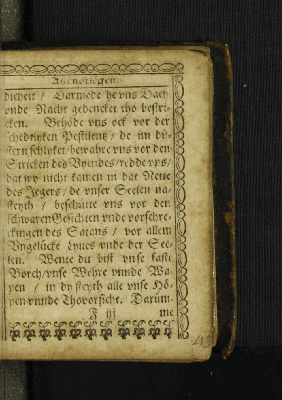 dicheit / Darmede he vns Dach
vnde Nacht gedencket tho bestri-
cken. Behöde vns ock vor der
schedtlyken Pestilentz / de im dü-
stern schlyket / bewahre vns vor den
Stricken des Vyendes / redde vns /
dat wy nicht kamen in dat Nette
des Jegers / de vnser Seelen na-
steyth / beschütte vns vor den
schwaren Gesichten vnde vorschre-
ckingen des Satans / vor allem
Vngelücke Lyues vnde der See-
len. Wente du bist vnse faste
Borch / vnse Wehre vnnde Wa-
pen / in dy steyth alle vnse Hö-
pen vnnde Thovorsicht. Darüm-
F iij me